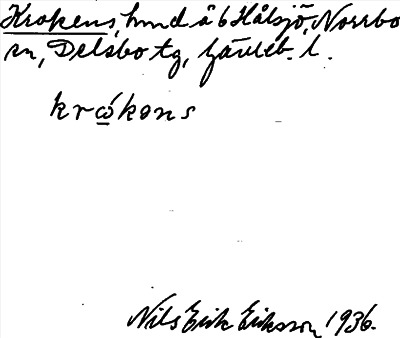 Krokens, hmd å 6 Hålsjö, Norrbo
sn, Delsbo tg, Gävleb. l.
krώ̲kens
Nils Erik Eriksson 1936.